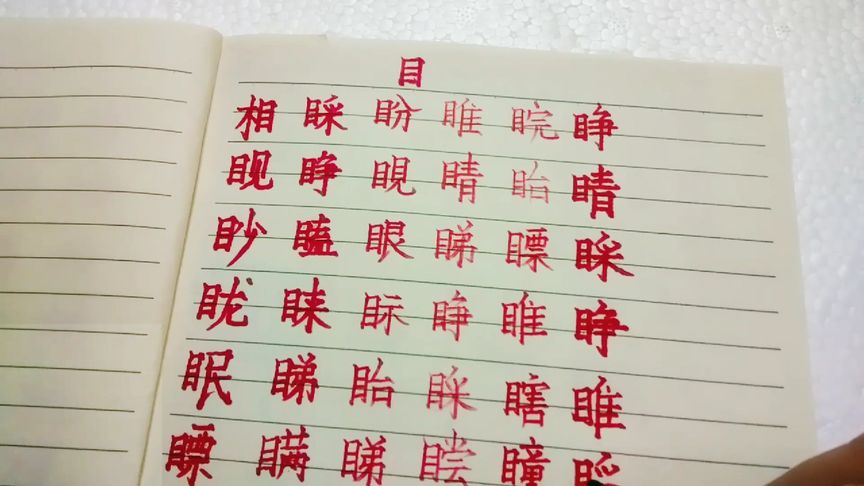 目
相 睬 盼 睢 睆 睁
觇 睁 睍 晴 眙 睛
眇 瞌 眼 睇 瞟 睬
眬 睐 眎 睁 睢 睁
眠 睇 眙 睬 瞎 睢
瞟 瞒 睇 瞠 瞳